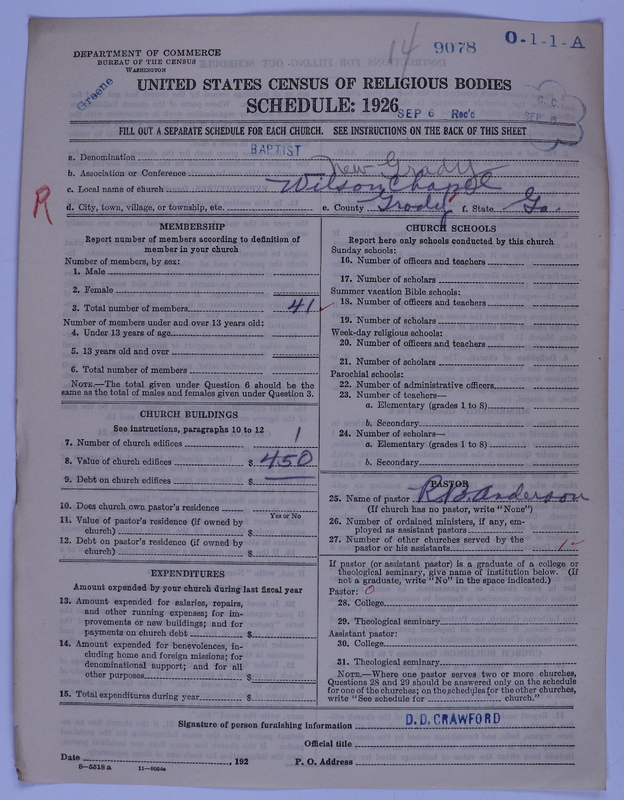 14 9078 O-1-1-A
DEPARTMENT OF COMMERCE
BUREAU OF THE CENSUS
WASHINGTON
Greene
UNITED STATES CENSUS OF RELIGIOUS BODIES
SCHEDULE: 1926
SEP 6 Rec'd
FILL OUT A SEPARATE SCHEDULE FOR EACH CHURCH. SEE INSTRUCTIONS ON THE BACK OF THIS SHEET
a. Denomination BAPTIST
b. Association or Conference New Grady
c. Local name of church Wilson Chapel
d. City, town, village, or township, etc. e. County Grady f. State Ga.
R
MEMBERSHIP
Report number of members according to definition of
member in your church
Number of members, by sex:
1. Male
2. Female
3. Total number of members 41
Number of members under and over 13 years old:
4. Under 13 years of age
5. 13 years old and over
6. Total number of members
NOTE.—The total given under Question 6 should be the
same as the total of males and females given under Question 3.
CHURCH BUILDINGS
See instructions, paragraphs 10 to 12
7. Number of church edifices 1
8. Value of church edifices $ 450
9. Debt on church edifices $
10. Does church own pastor's residence
Yes or No
11. Value of pastor's residence (if owned by
church) $
12. Debt on pastor's residence (if owned by
church) $
EXPENDITURES
Amount expended by your church during last fiscal year
13. Amount expended for salaries, repairs,
and other running expenses; for im-
provements or new buildings; and for
payments on church debt $
14. Amount expended for benevolences, in-
cluding home and foreign missions; for
denominational support; and for all
other purposes $
15. Total expenditures during year $
CHURCH SCHOOLS
Report here only schools conducted by this church
Sunday schools:
16. Number of officers and teachers
17. Number of scholars
Summer vacation Bible schools:
18. Number of officers and teachers
19. Number of scholars
Week-day religious schools:
20. Number of officers and teachers
21. Number of scholars
Parochial schools:
22. Number of administrative officers
23. Number of teachers—
a. Elementary (grades 1 to 8)
b. Secondary
24. Number of scholars—
a. Elementary (grades 1 to 8)
b. Secondary
PASTOR
25. Name of pastor R. B. Anderson
(If church has no pastor, write "None")
26. Number of ordained ministers, if any, em-
ployed as assistant pastors
27. Number of other churches served by the
pastor or his assistants
If pastor (or assistant pastor) is a graduate of a college or
theological seminary, give name of institution below. (If
not a graduate, write "No" in the space indicated.)
Pastor: 0
28. College
29. Theological seminary
Assistant pastor:
30. College
31. Theological seminary
NOTE.—Where one pastor serves two or more churches,
Questions 28 and 29 should be answered only on the schedule
for one of the churches; on the schedules for the other churches,
write "See schedule for church."
Signature of person furnishing information D. D. CRAWFORD
Official title
Date , 192 P. O. Address
8-5518a 11-9054a